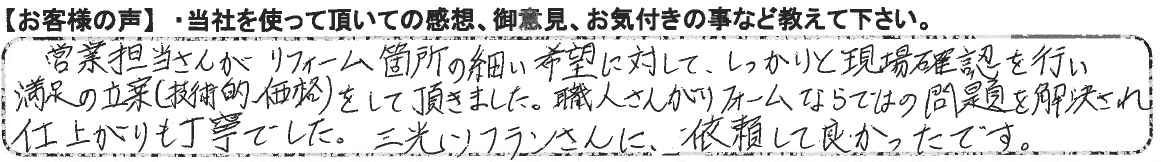 【お客様の声】・当社を使って頂いての感想、御意見、お気付きの事など教えて下さい。
営業担当さんがリフォーム箇所の細い希望に対して、しっかりと現場確認を行い
満足の立案(技術的、価格)をして頂きました。職人さんがリフォームならではの問題を解決され
仕上がりも丁寧でした。三光ソフランさんに、依頼して良かったです。